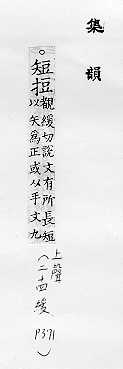 集韻
。短𢭃觀緩切說文有所長短
以矢為正或从手文九
上聲
（二十四緩 P371）